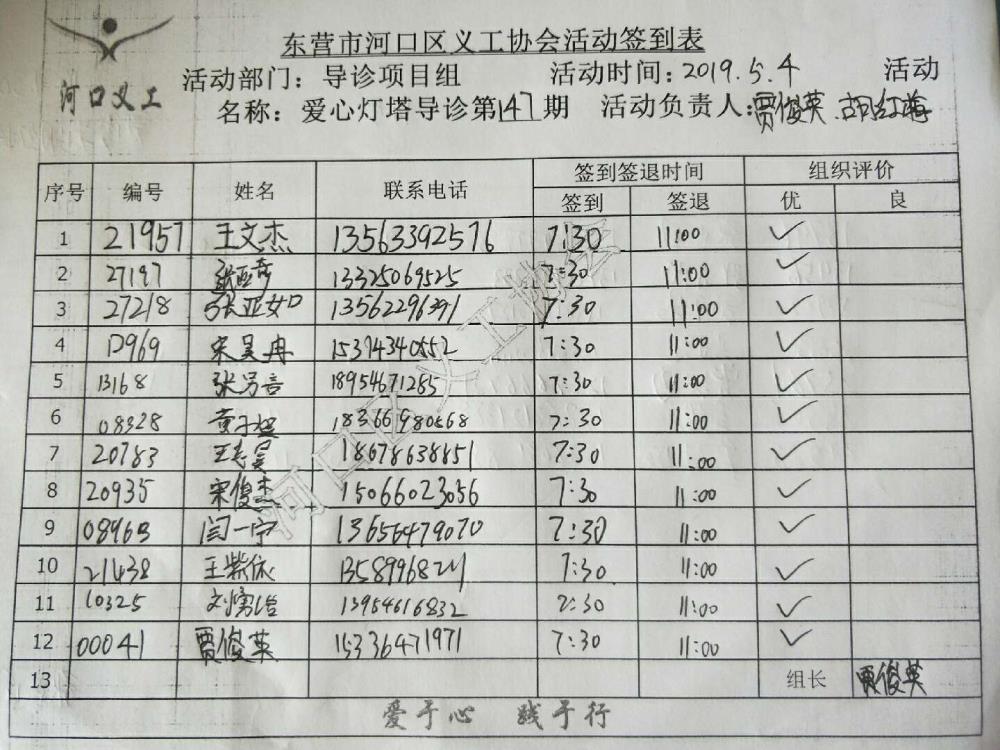 东营市河口区义工协会活动签到表
河口义工
活动部门：导诊项目组 活动时间：2019.5.4 活动
名称：爱心灯塔导诊第147期 活动负责人：贾俊英 胡红梅
序号 编号 姓名 联系电话 签到签退时间 组织评价
签到 签退 优 良
1 21957 王文杰 13563392576 7:30 11:00 ✓
2 27197 13325069525 7:30 11:00 ✓
3 27218 张亚女口 13562296391 7:30 11:00 ✓
4 12969 宋昊冉 15374340552 7:30 11:00 ✓
5 13168 18954671285 7:30 11:00 ✓
6 08328 18366980568 7:30 11:00 ✓
7 20783 王志昊 18678638851 7:30 11:00 ✓
8 20935 宋俊杰 15066023056 7:30 11:00 ✓
9 08963 闫一宁 13656479070 7:30 11:00 ✓
10 21438 王紫依 7:30 11:00 ✓
11 10325 13954616832 7:30 11:00 ✓
12 00041 贾俊英 15336471971 7:30 11:00 ✓
13 组长 贾俊英
爱于心 践于行
河口区义工协会